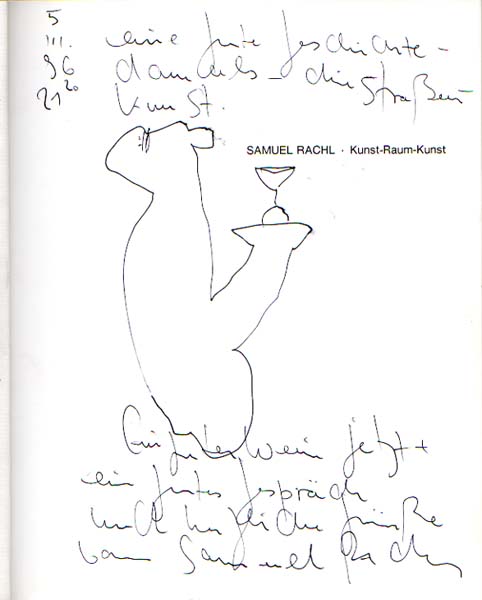 5
III.
96
21²⁰
eine gute Geschichte -
damals - die Straßen
kunst.
SAMUEL RACHL · Kunst-Raum-Kunst
Ein guter Wein jetzt +
ein gutes Gespräch
und herzliche Grüße
vom Samuel Rachl